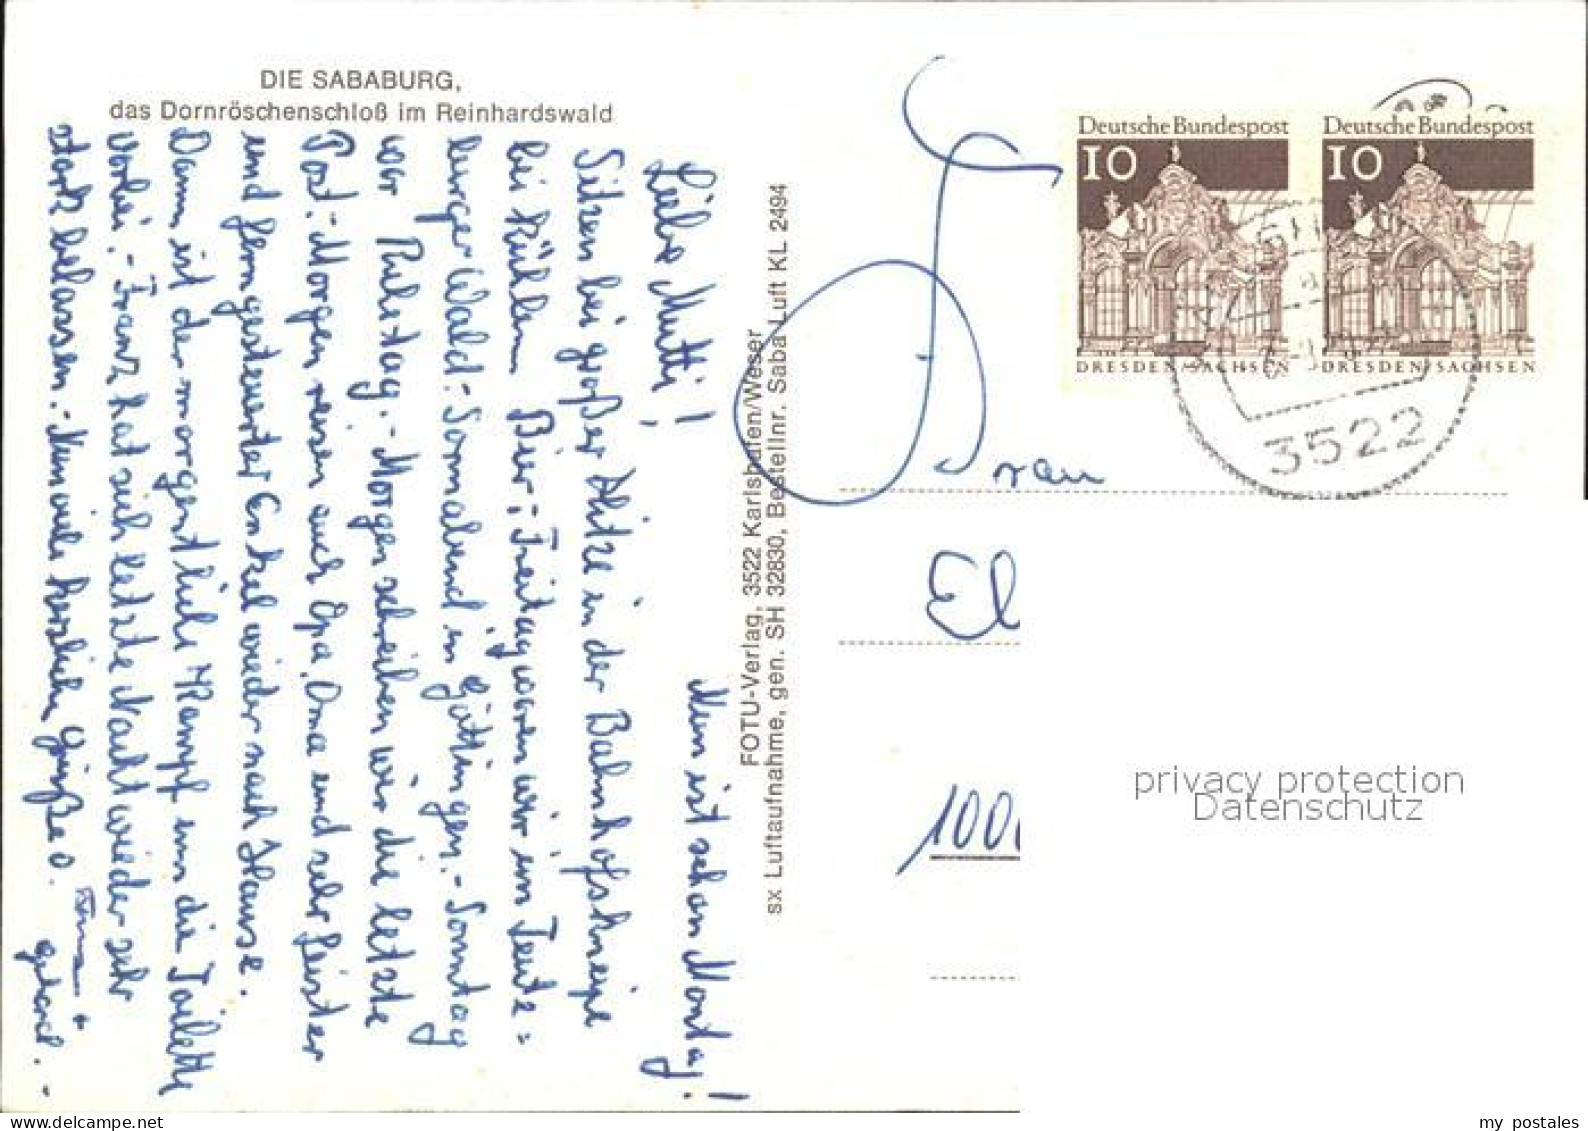 DIE SABABURG,
das Dornröschenschloß im Reinhardswald
Nun ist schon Montag!
Liebe Mutti!
Sitzen bei großer Hitze in der Bahnhofskneipe
bei kühlem Bier, Freitag waren wir im Teuto=
burger Wald.- Sonnabend in Göttingen.- Sonntag
war Ruhetag.- Morgen schreiben wir die letzte
Post.- Morgen reisen auch Opa, Oma und
und ferngesteuerter Enkel wieder nach Hause.
Dann ist der morgentliche Kampf um die Toilette
vorbei.- Franz hat sich letzte Nacht wieder sehr
stark belassen.- Nun viele herzliche Grüße
+
Gerhard.-
FOTU-Verlag, 3522 Karlshafen/Weser
sx Luftaufnahme, gen. SH 32830, Bestellnr. Saba Luft KL 2494
Deutsche Bundespost
10
DRESDEN/SACHSEN
Deutsche Bundespost
10
DRESDEN/SACHSEN
3522
Frau
El
100
privacy protection
Datenschutz
my postales